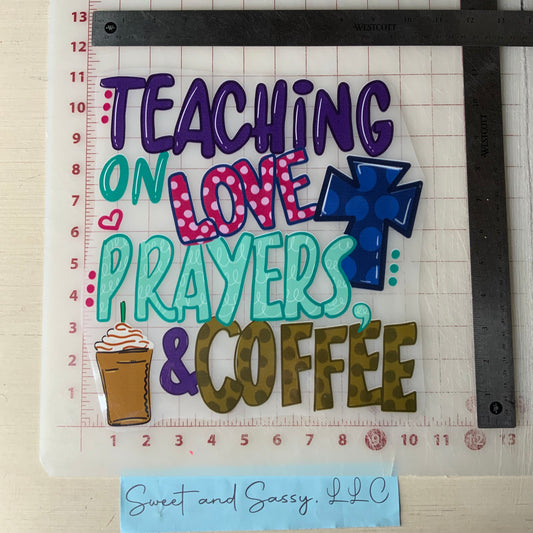 13
8 9 WESTCOTT 4 3 2 1
12
11
TEACHING
10
9
ON LOVE,
8
7
6
PRAYERS,
5
4
3
& COFFEE
2
1
1 2 3 4 5 6 7 8 9 10 11 12 13
WESTCOTT
Sweet and Sassy, LLC